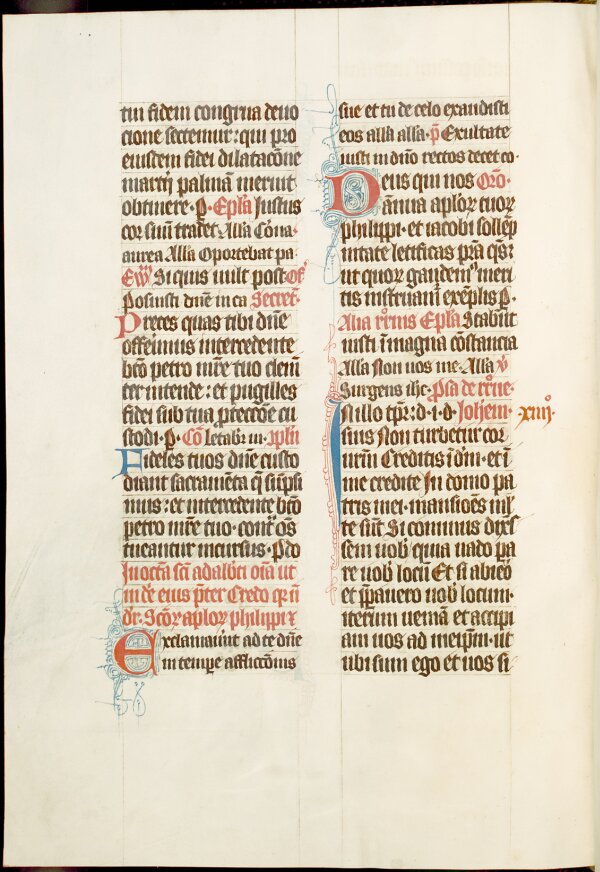 tui fidem congrua deuo
cione sectemur: qui pro
eiusdem fidei dilatacōne
martirij palmā meruit
obtinere · P · Ep̄la Justus
cor suū tradet Alla Cōna·
aurea Alla Oportebat pa
Ew̄ Si quis uult post Of̄
Posuisti dn̄e in ca Secret̄·
Preces quas tibi dn̄e
offerimus intercedente
bt̄o petro m̄re tuo clem̄
ter intende: et pugilles
fidei sub tua ꝓtecc̄oe cu
stodi · P · Cō Letabr̄ iu· 9plin̄
Fideles tuos dn̄e custo
diant sacramēta q̄ sūpsi
mus: et intercedente bt̄o
petro m̄re tuo · cont̄ os̄
tueantur incursus · P do
In oct̄a sc̄i adalb̄ti om̄a ut
in de eius p̄ter Credo qr̄ n̄
dr̄· Sc̄oꝝ aploꝝ philippi ⁊
Exclamauūt ad te dn̄e
in tempe afflicc̄onis
sue et tu de celo exaudisti
eos alla alla· p̄ Exultate
iusti in dn̄o rectos decet co·
Deus qui nos Or̄o·
ānua aploꝝ tuoꝝ
philippi· et iacobi sollep̄
nitate letificas p̄ra qs̄
ut quoꝝ gaudem9 meri
tis instruam̄ exēplis P·
Alia rr̄nis Ep̄la Stabūt
iusti ī magna cōstancia
Alla Non uos me· Alla v̄
Surgens ih̄c· P̄sa de rr̄ne·
In illo tp̄r: d· i· d· Johem̄· xiiij°
suis Non turbetur cor
urm̄ Creditis ī dm̄· et ī
me credite In domo pa
tris mei· mansiōes ml̄
te sūt Si cominus dixis
sem uob̄ quia uado pa
re uob̄ locū Et si abiēo
et p̄pauero uob̄ locum·
iterum ueniā et accipi
am uos ad meip̄m· ut
ubi sum ego et uos si